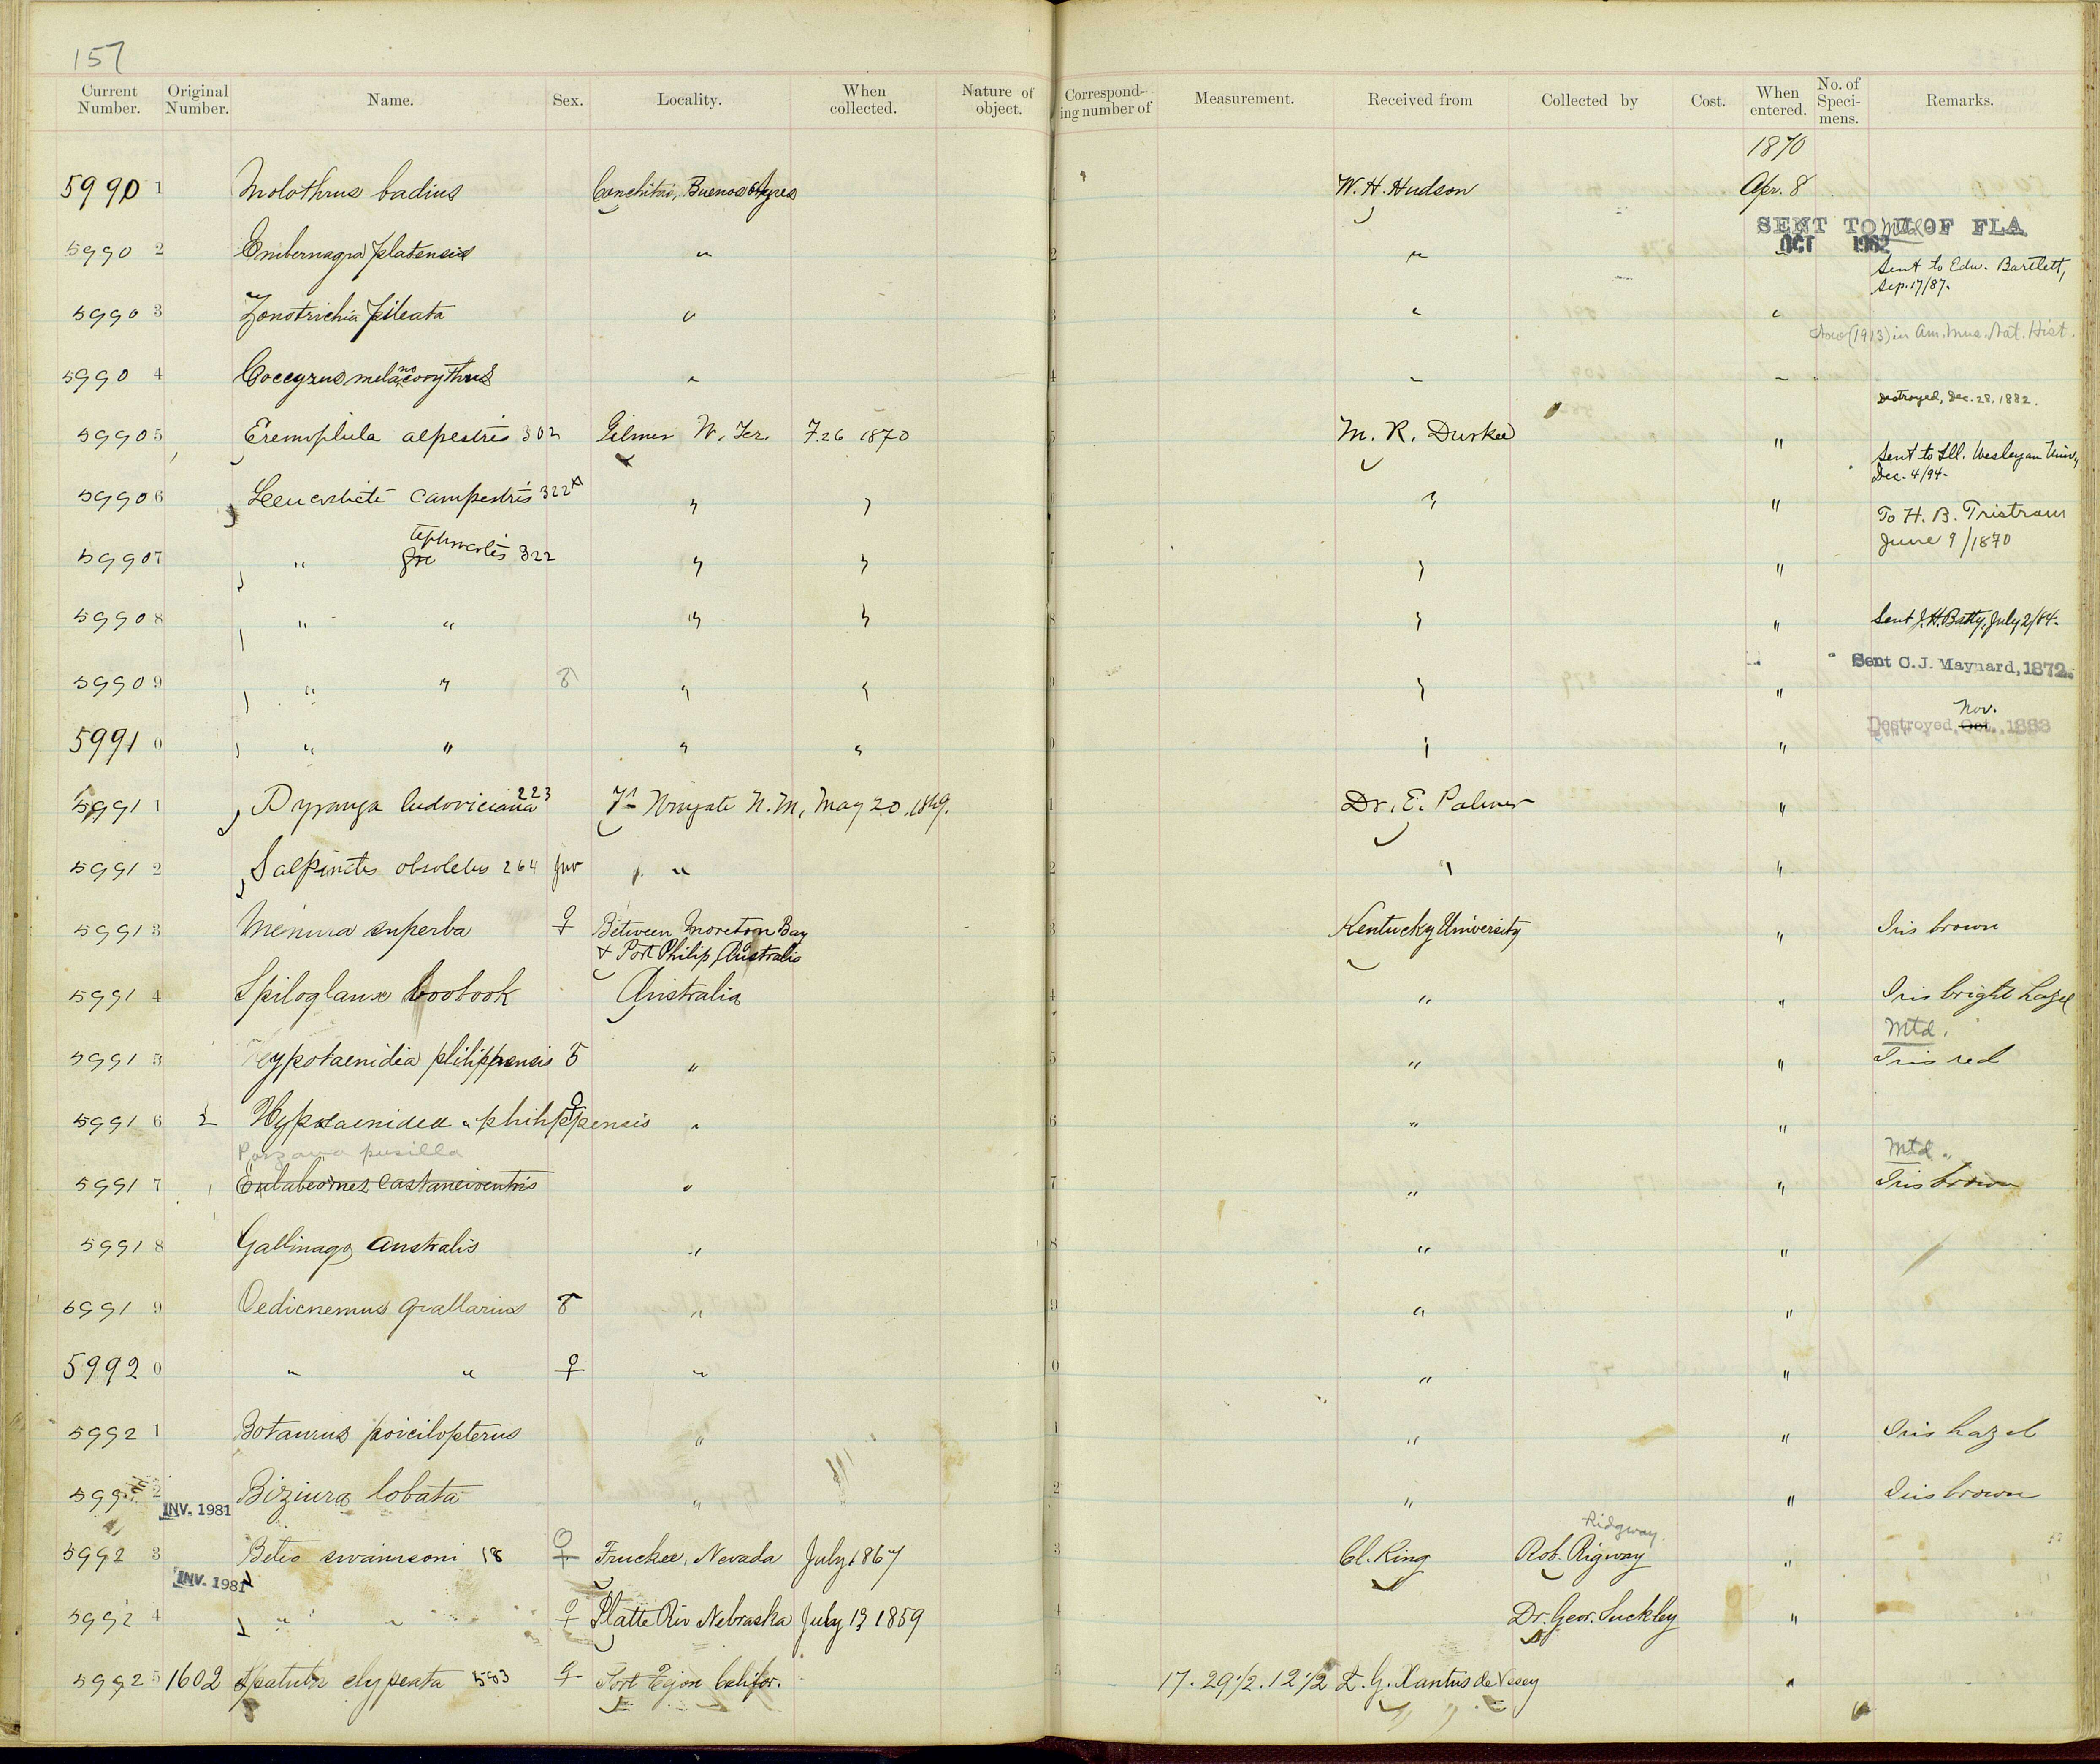 157
Current Number. Original Number. Name. Sex. Locality. When collected. Nature of object. Correspond-ing number of Measurement. Received from Collected by Cost. When entered. No. of Speci-mens. Remarks.
1870
59901 Molothrus badius Conchitas, Buenos Ayres W. H. Hudson Apr. 8
SENT TO U OF FLA
OCT 1962
59902 Embernagra platensis " " "
Sent to Edw. Bartlett, Sep. 17/87.
59903 Zonotrichia pileata " " "
Now (1913) in Am. Mus. Nat. Hist.
59904 Coccyzus melanocorythus " " "
Destroyed, Dec. 28, 1882.
59905 Eremophila alpestris 302 Gilmer W. Ter. F. 26 1870 M. R. Durkee "
Sent to Ill. Wesleyan Univ, Dec. 4/94.
59906 Leucosticte campestris 322 a " " " "
To H. B. Tristram June 9/1870
59907 " tephrocotis 322 " " " "
59908 " " " " " " Sent J. H. Batty, July 2/84.
Sent C. J. Maynard, 1872.
59909 " " ♂ " " " "
Nov.
Destroyed Oct. 1883
59910 " " " " " "
59911 Pyranga ludoviciana 223 Ft Wingate N. M. May 20, 1869. Dr. E. Palmer "
59912 Salpinctes obsoletus 264 Juv " " "
59913 Menura superba ♀ Between Moreton Bay & Port Philip, Australia Kentucky University " Iris brown
59914 Spiloglaux boobook Australia " " Iris bright hazel
Mtd.
59915 Hypotaenidia philippensis ♂ " " " Iris red
59916 2 Hypotaenidea philippensis ♀ " " "
Porzana pusilla Mtd.
59917 Eulabeornes castaneiventris " " " Iris brown
59918 Gallinago Australis " " "
59919 Oedicnemus grallarius ♂ " " "
59920 " " ♀ " " "
59921 Botaurus poicilopterus " " " Iris hazel
59922 Biziura lobata " " " Iris brown
INV. 1981
Ridgway
59923 Buteo swainsoni 18 ♀ Truckee, Nevada July 1867 Cl. King Rob. Rigway "
INV. 1981
59924 " " ♀ Platte Riv Nebraska July 13 1859 Dr. Geo. Suckley "
59925 1602 Spatula clypeata 583 ♀ Fort Tejon Califor. 17. 29 1/2. 12 1/2 L. G. Xantus de Vesey "